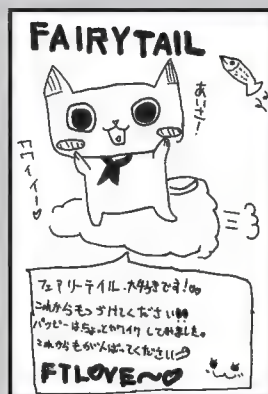 FAIRYTAIL
あいさー!
カワイイー♡
フェアリーテイル大好きです!
これからもつづけてください
ハッピーはちょっとカワイクしてみました。
これからもがんばってください
FTLOVE〜♡